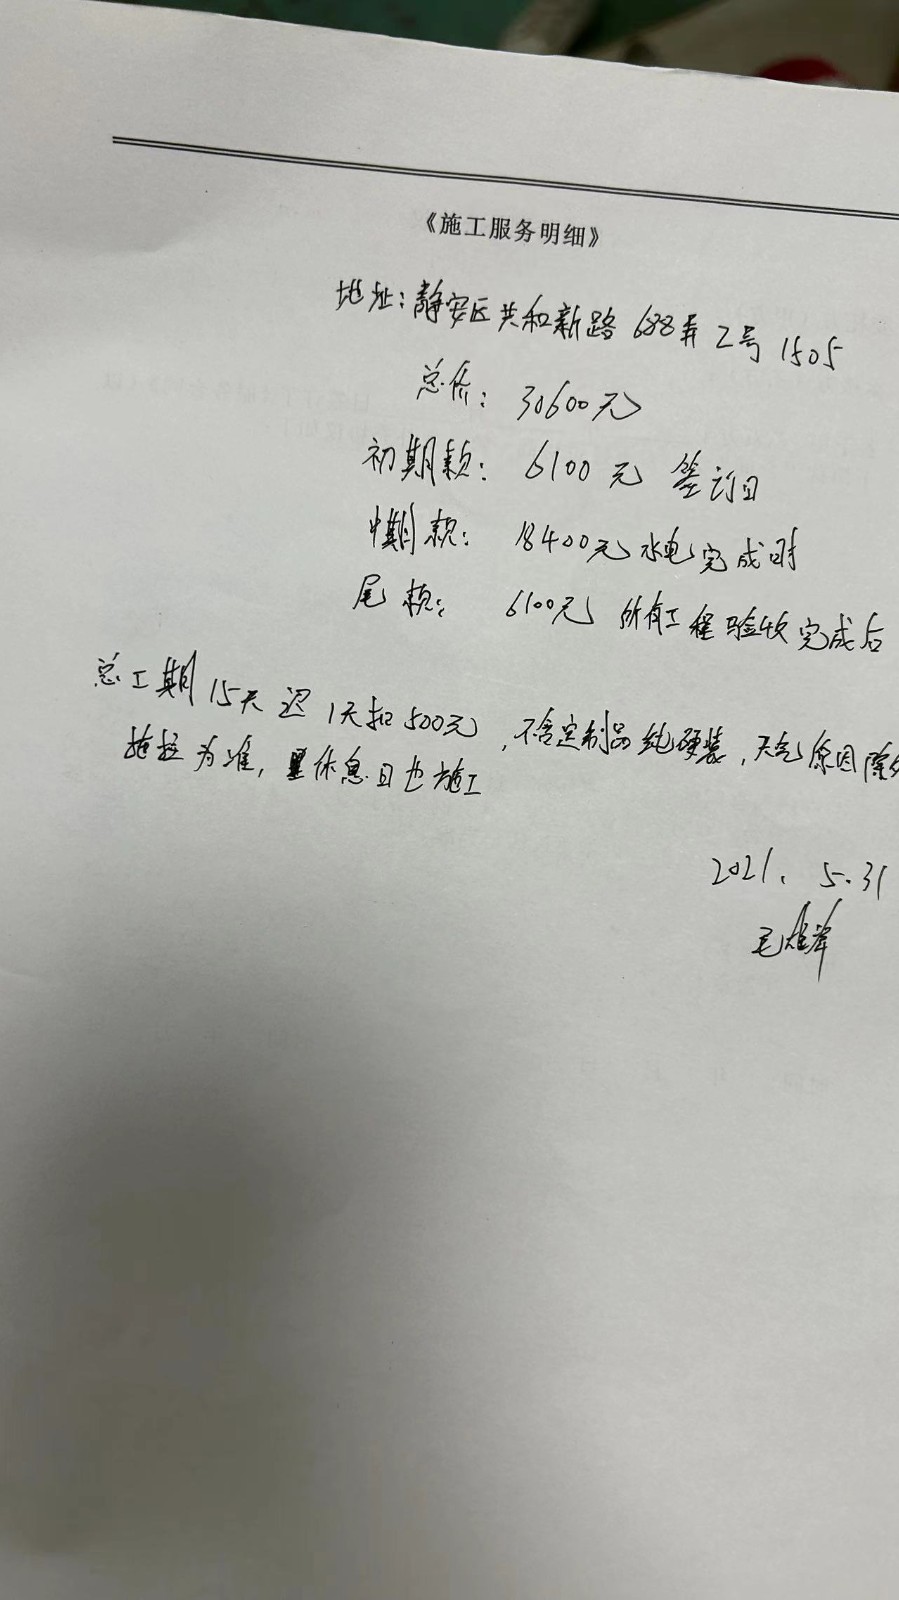 《施工服务明细》
地址：静安区共和新路 688弄 2号 1505
总价：30600元
初期款：6100元 签订日
中期款：18400元 水电完成时
尾款：6100元 所有工程验收完成后
总工期15天 迟1天扣500元，不含定制品纯硬装，天气原因除外
为准，休息日也施工
2021. 5.31